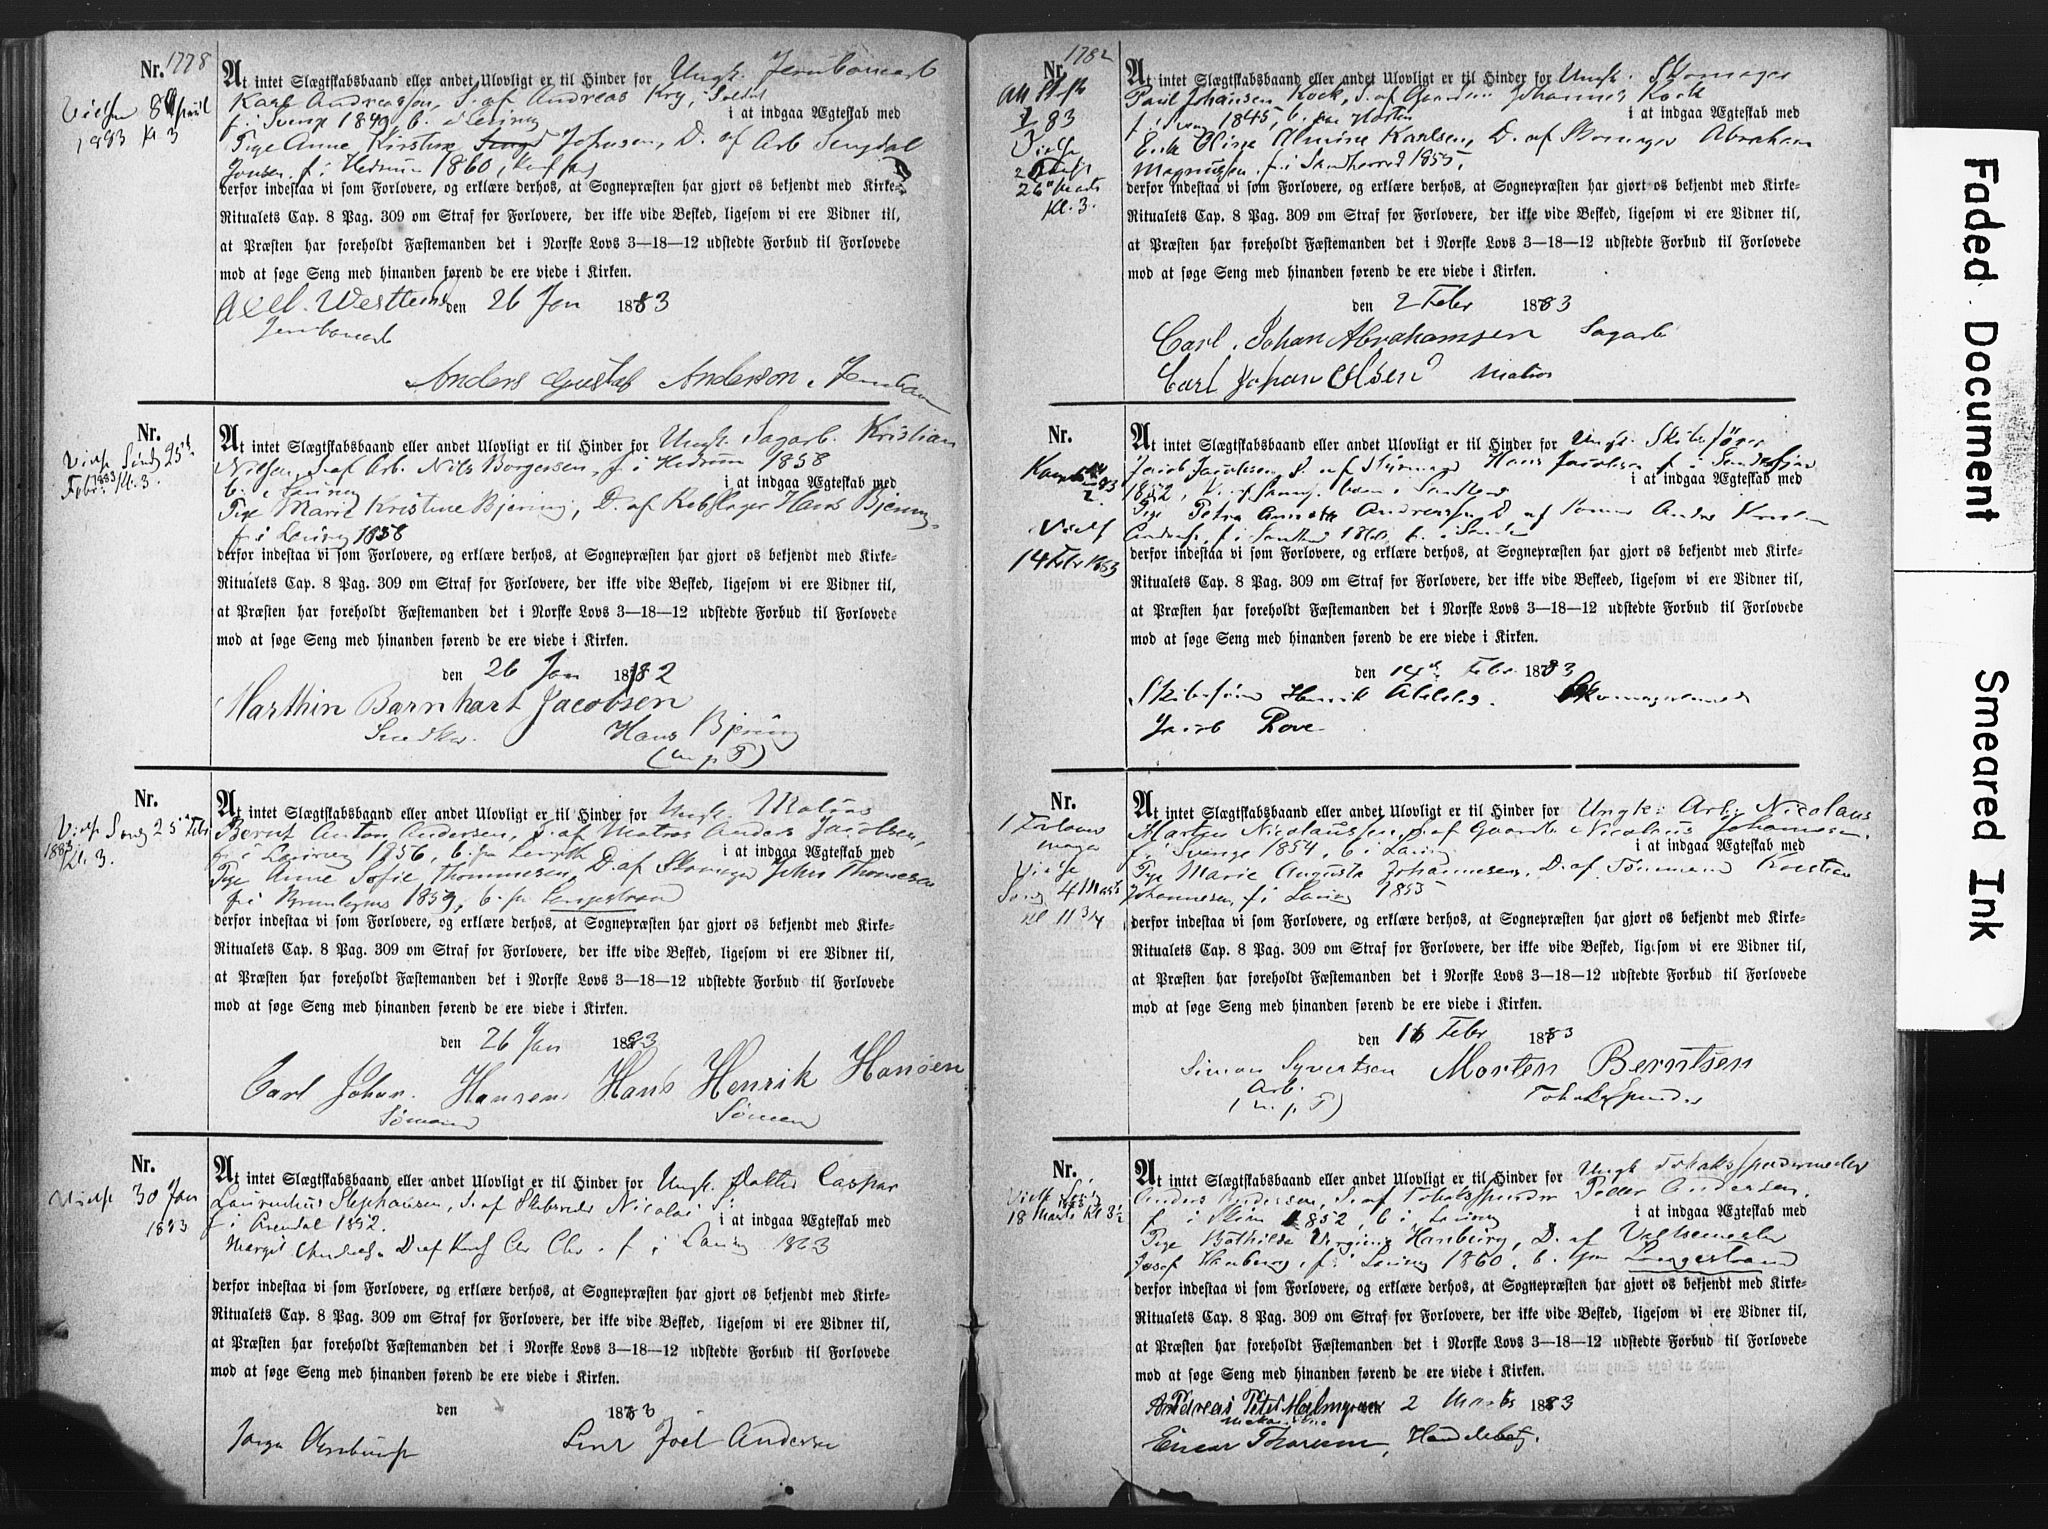 Nr. 1778
At intet Slægtskabsbaand eller andet Ulovligt er til Hinder for Ungk. Jernbanearb
Karl Andreasson, S. af Andreas Kry, Soldat
i at indgaa Ægteskab med
f. i Sverige 1849, b. i Laurvig
Pige Anne Kirstine Johnsen, D. af Arb
f. i Hedrum 1860,
derfor indestaa vi som Forlovere, og erklære derhos, at Sognepræsten har gjort os bekjendt med Kirke-
Ritualets Cap. 8 Pag. 309 om Straf for Forlovere, der ikke vide Besked, ligesom vi ere Vidner til,
at Præsten har foreholdt Fæstemanden det i Norske Lovs 3—18—12 udstedte Forbud til Forlovede
mod at søge Seng med hinanden førend de ere viede i Kirken.
Vielse 8 April
1883 Kl 3
Axel Westlund den 26 Jan 1883
Jernbanearb
Anders Gustaf Anderson, Jernban
Nr.
At intet Slægtskabsbaand eller andet Ulovligt er til Hinder for Ungk. Sagarb. Kristian
Nilsen, S. af Arb. Nils Borgersen, f. i Hedrum 1858
i at indgaa Ægteskab med
b. i Laurvig
Pige Marie Kristine Bjering, D. af Rebslager Hans Bjering,
f. i Laurvig 1858
derfor indestaa vi som Forlovere, og erklære derhos, at Sognepræsten har gjort os bekjendt med Kirke-
Ritualets Cap. 8 Pag. 309 om Straf for Forlovere, der ikke vide Besked, ligesom vi ere Vidner til,
at Præsten har foreholdt Fæstemanden det i Norske Lovs 3—18—12 udstedte Forbud til Forlovede
mod at søge Seng med hinanden førend de ere viede i Kirken.
Vielse Sønd 25de
Febr. 1883 Kl. 3.
den 26 Jan 1882
Marthin Barnhart Jacobsen
Hans Bjering
(m. p. P)
Nr.
At intet Slægtskabsbaand eller andet Ulovligt er til Hinder for Ungk. Matros
Bernt Anton Andersen, S. af Matros Anders Jacobsen,
i at indgaa Ægteskab med
f. i Laurvig 1856, b. paa Langestr.
Pige Anne Sofie Thommesen, D. af Skomager John Thommesen
f. i Brunlagnes 1859, b. paa Langestrand
derfor indestaa vi som Forlovere, og erklære derhos, at Sognepræsten har gjort os bekjendt med Kirke-
Ritualets Cap. 8 Pag. 309 om Straf for Forlovere, der ikke vide Besked, ligesom vi ere Vidner til,
at Præsten har foreholdt Fæstemanden det i Norske Lovs 3—18—12 udstedte Forbud til Forlovede
mod at søge Seng med hinanden førend de ere viede i Kirken.
Vielse Sønd 25de Febr
1883 Kl. 3.
den 26 Jan 1883
Carl Johan Hansen Hans Henrik Hansen
Sømand Sømand
Nr.
At intet Slægtskabsbaand eller andet Ulovligt er til Hinder for Ungk. Caspar
Laurentius Stephansen, S. af Skibsreder Nicolai S.
i at indgaa Ægteskab med
f. i Arendal 1852.
Margit D. af f. i Laurvig 1863
derfor indestaa vi som Forlovere, og erklære derhos, at Sognepræsten har gjort os bekjendt med Kirke-
Ritualets Cap. 8 Pag. 309 om Straf for Forlovere, der ikke vide Besked, ligesom vi ere Vidner til,
at Præsten har foreholdt Fæstemanden det i Norske Lovs 3—18—12 udstedte Forbud til Forlovede
mod at søge Seng med hinanden førend de ere viede i Kirken.
Vielse 30 Jan
1883
den 1883
Joel Andersen
Nr. 1782
At intet Slægtskabsbaand eller andet Ulovligt er til Hinder for Ungk. Skomager
Paul Johansen Kock, S. af Gaardm Johannes Kock
i at indgaa Ægteskab med
f. i Sverig 1845, b. paa Horten
Enke Oline Almine Karlsen, D. af Skomager Abraham
Magnussen, f. i Sandherred 1855,
derfor indestaa vi som Forlovere, og erklære derhos, at Sognepræsten har gjort os bekjendt med Kirke-
Ritualets Cap. 8 Pag. 309 om Straf for Forlovere, der ikke vide Besked, ligesom vi ere Vidner til,
at Præsten har foreholdt Fæstemanden det i Norske Lovs 3—18—12 udstedte Forbud til Forlovede
mod at søge Seng med hinanden førend de ere viede i Kirken.
Vielse
26 Marts
Kl. 3.
den 2 Febr 1883
Carl Johan Abrahamsen Sagarb
Carl Johan Olsen Matros
Nr.
At intet Slægtskabsbaand eller andet Ulovligt er til Hinder for Ungk. Skibsfører
Jacob Jacobsen S. af Styrmand Hans Jacobsen f. i Sandefjord
i at indgaa Ægteskab med
1852,
Pige Petra Annette Andreasen D. af Anders
derfor indestaa vi som Forlovere, og erklære derhos, at Sognepræsten har gjort os bekjendt med Kirke-
Ritualets Cap. 8 Pag. 309 om Straf for Forlovere, der ikke vide Beskeed, ligesom vi ere Vidner til,
at Præsten har foreholdt Fæstemanden det i Norske Lovs 3—18—12 udstedte Forbud til Forlovede
mod at søge Seng med hinanden førend de ere viede i Kirken.
Vielse
14 Febr 1883
den 14de Febr. 1883
Skibsfører Henrik
Jacob Rove
Nr.
At intet Slægtskabsbaand eller andet Ulovligt er til Hinder for Ungk: Arb. Nicolaus
Marten Nicolaussen, S. af Gaardb. Nicolaus Johannesen.
i at indgaa Ægteskab med
f. i Sverige 1854, b. i Laurvig
Pige Marie Augusta Johannesen, D. af Tømmermand Kristian
Johannesen, f. i Laurvig 1855
derfor indestaa vi som Forlovere, og erklære derhos, at Sognepræsten har gjort os bekjendt med Kirke-
Ritualets Cap. 8 Pag. 309 om Straf for Forlovere, der ikke vide Besked, ligesom vi ere Vidner til,
at Præsten har foreholdt Fæstemanden det i Norske Lovs 3—18—12 udstedte Forbud til Forlovede
mod at søge Seng med hinanden førend de ere viede i Kirken.
Vielse
Sønd 4 Marts
Kl 11 3/4
den 16 Febr 1883
Simon Syvertsen Morten Berntsen
Arb. Tobaksspinder
(m. p. P)
Nr.
At intet Slægtskabsbaand eller andet Ulovligt er til Hinder for Ungk Tobaksspindermester
Anders Andersen, S. af Tobaksspinder Peder Andersen.
i at indgaa Ægteskab med
f. i Skien 1852, b. i Laurvig
Pige Bothilde Virginie Hanburg, D. af Valsemester
Josef Hanburg, f. i Laurvig 1860, b. paa Langestrand
derfor indestaa vi som Forlovere, og erklære derhos, at Sognepræsten har gjort os bekjendt med Kirke-
Ritualets Cap. 8 Pag. 309 om Straf for Forlovere, der ikke vide Besked, ligesom vi ere Vidner til,
at Præsten har foreholdt Fæstemanden det i Norske Lovs 3—18—12 udstedte Forbud til Forlovede
mod at søge Seng med hinanden førend de ere viede i Kirken.
Vielse Sønd
18 Marts Kl 3½
Andreas Peter Malmgreen 2 Marts 1883
Einar Thoresen, Handelsbetj.
Faded Document
Smeared Ink